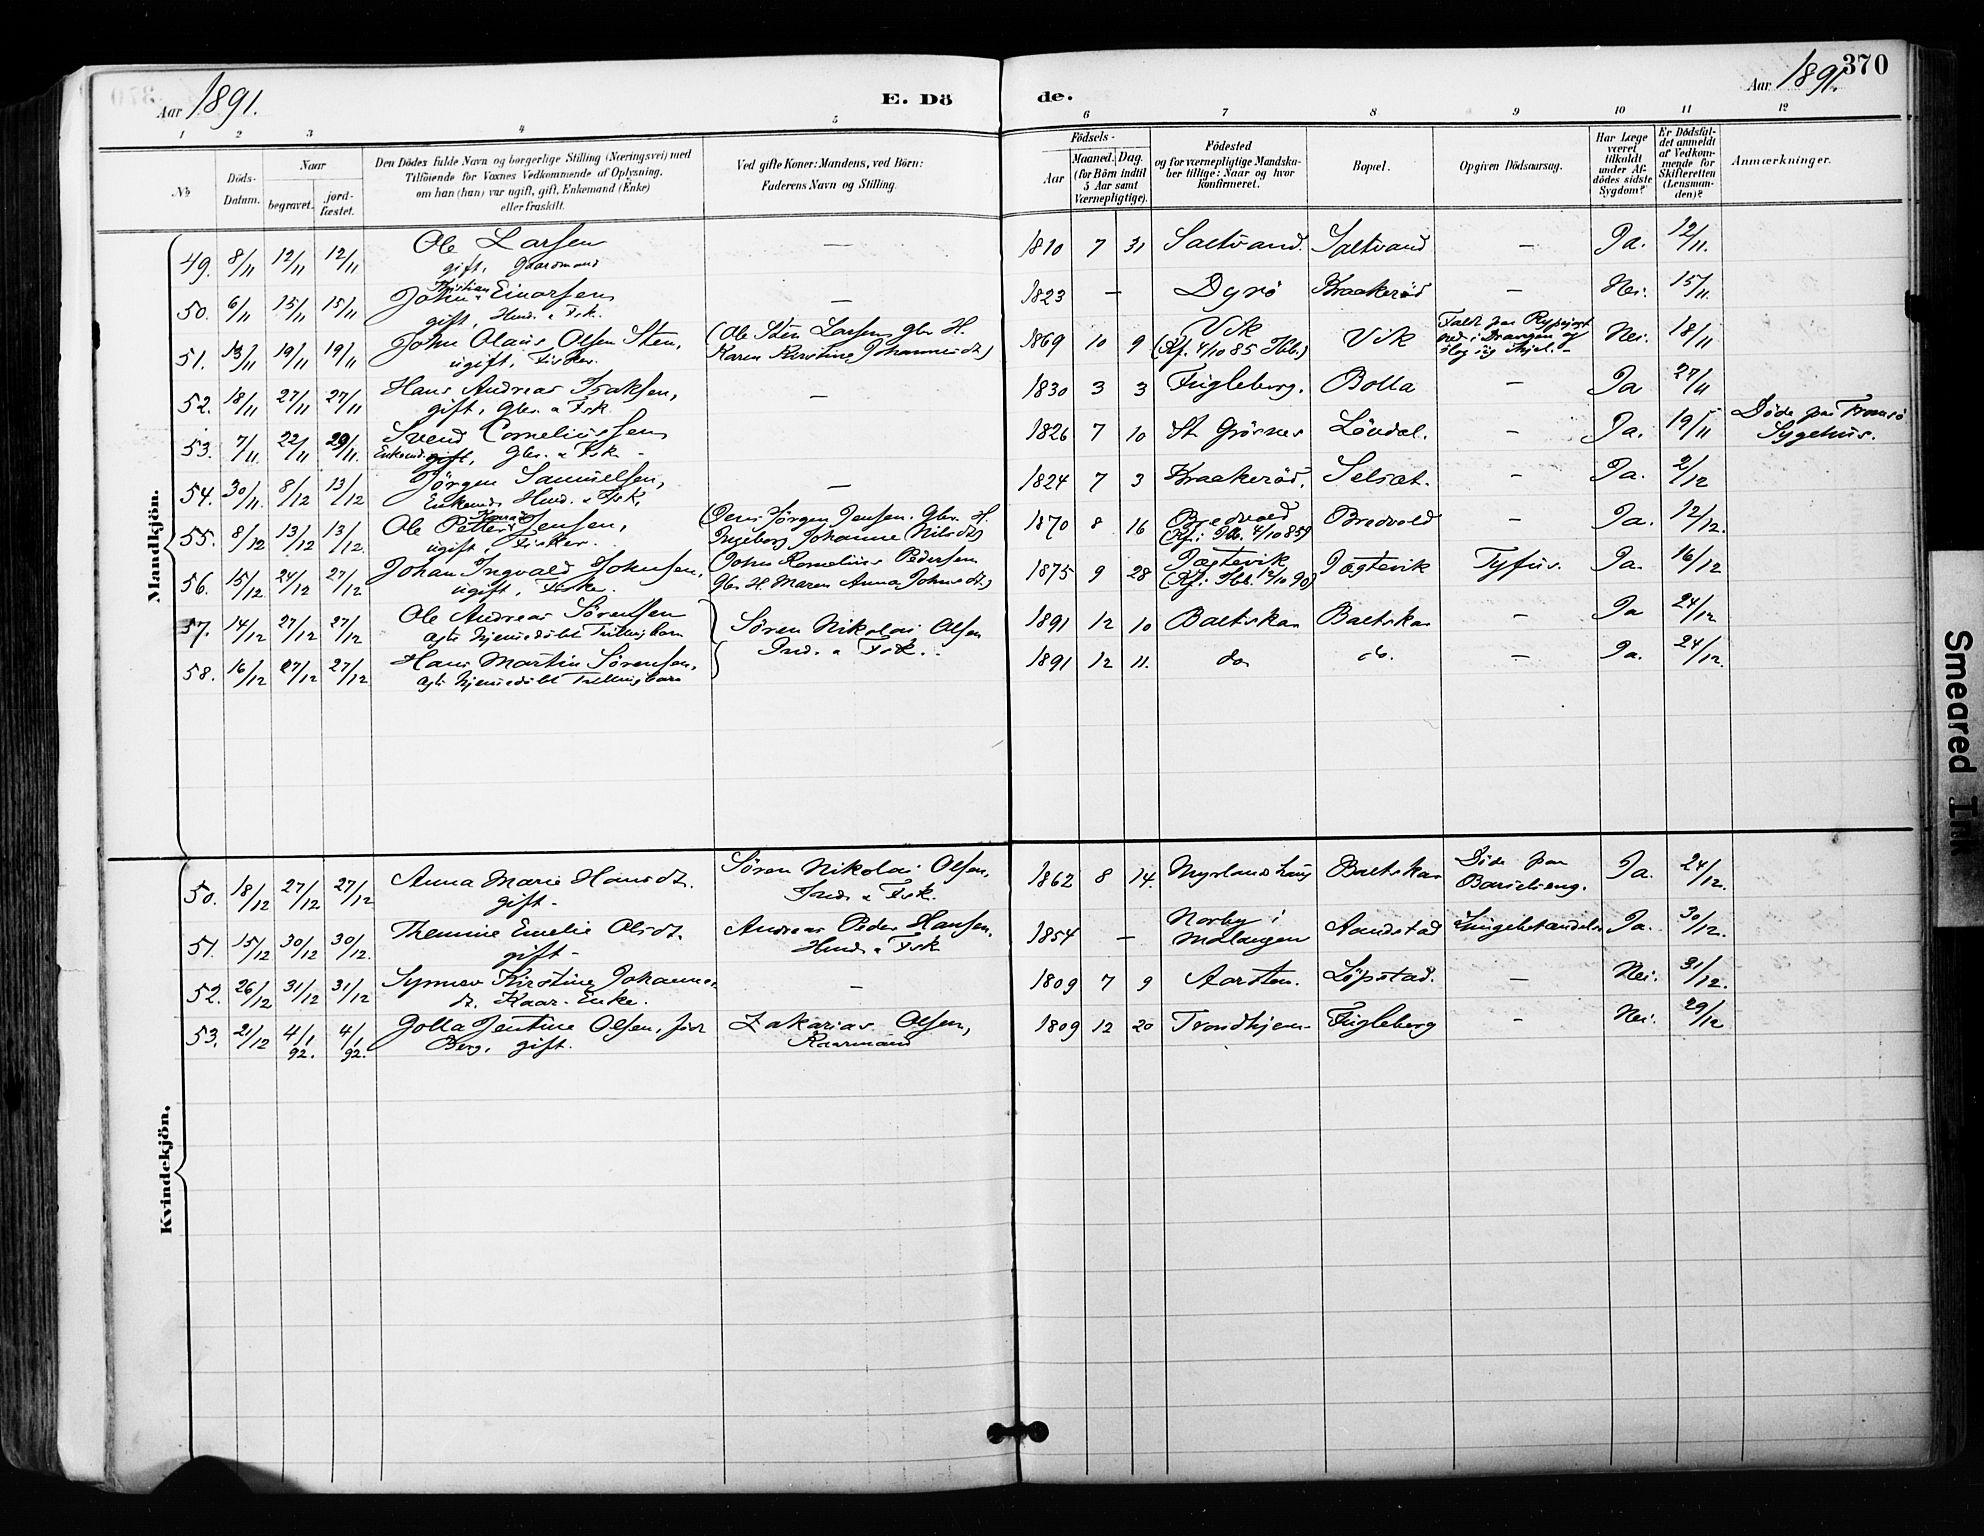 370
Aar 1891.
E. Dö
de.
Aar 1891.
1 2 3 4 5 6 7 8 9 10 11 12
No
Döds-Datum.
Naar
begravet.
jord-fæstet.
Den Dödes fulde Navn og borgerlige Stilling (Næringsvei) med
Tilföiende for Voxnes Vedkommende af Oplysning,
om han (hun) var ugift, gift, Enkemand (Enke)
eller fraskilt.
Ved gifte Koner: Mandens, ved Börn:
Faderens Navn og Stilling.
Födsels-
Aar
Maaned. Dag.
(for Börn indtil
5 Aar samt
Værnepligtige).
Födested
og for værnepligtige Mandska-
ber tillige: Naar og hvor
konfirmeret.
Bopæl.
Opgiven Dödsaarsag.
Har Læge
været
tilkaldt
under Af-
dödes sidste
Sygdom?
Er Dödsfal-
det anmeldt
af Vedkom-
mende for
Skifteretten
(Lensman-
den)?
Anmærkninger.
Mandkjön.
49. 8/11 12/11 12/11 Ole Larsen — 1810 7 31 Saltvand. Saltvand — Ja. 12/11.
gift, Gaardmand
50. 6/11 15/11 15/11 Johan Kristian Einarsen — 1823 — Dyrö Kraakeröd — Nei. 15/11.
gift, Hmd. & Fsk.
51. 13/11 19/11 19/11 John Olaus Olsen Sten, (Ole Sten Larsen, Gbr. H. 1869 10 9 Vik Vik Nei. 18/11
ugift, Fisker. Karen Kirstine Johannesdt) (Kf. 4/10 85 Ibb.)
ned i Drangen og
slog sig ihjel. -
52. 18/11 27/11 27/11 Hans Andreas Isaksen, — 1830 3 3 Fugleberg. Bolla — Ja 27/11
gift, Gbr. & Fsk.
53. 7/11. 22/11 29/11. Svend Corneliussen 1826 7 10 St. Grösnes Lövdal. — Ja. 19/11 Döde paa Tromsö
Enkemd. gift, Gbr. & Fsk. - Sygehus.
54. 30/11. 8/12 13/12 Jörgen Samuelsen, — 1824 7 3 Kraakeröd. Selsæt. — Ja. 2/12
Enkemd. Hmd. & Fsk.
55. 8/12 13/12 13/12. Ole Petter Jensen, (Jens Jörgen Jensen. Gbr. H. 1870 8 16 Bredvold Bredvold — Ja. 12/12.
ugift, Fisker. Ingeborg Johanne Nilsdt) (Kf. i Ibb. 4/10 85)
56. 15/12 24/12 27/12 Johan Ingvald Johnsen, (John Kornelius Pedersen 1875 9 28 Jægtevik Jægtevik Tyfus. Ja. 16/12
ugift, Fisker. Gbr. H. Maren Anna Johnsdt) (Kf. i Ibb. 12/10 90)
57. 14/12 27/12 27/12 Ole Andreas Sörensen Sören Nikolai Olsen 1891 12 10 Baltskar Baltskar — Ja 24/12
ægte hjemmedöbt Trillingbarn Ind. & Fsk.
58. 16/12 27/12 27/12 Hans Martin Sörensen, 1891 12 11. do do. — Ja. 24/12.
ægte hjemmedöbt Trillingbarn
Kvindekjön.
50. 18/12 27/12. 27/12. Anna Marie Hansdt. Sören Nikolai Olsen, 1862 8 14. Myrlandshaug Baltskar Döde paa Ja. 24/12.
gift - Ind. & Fsk. Barselseng.
51. 15/12 30/12 30/12. Themine Emelie Olsdt. Andreas Peder Hansen, 1854 — Norby i Malangen Aandstad Ja. 30/12.
gift - Hmd. & Fsk
52. 26/12 31/12 31/12 Synnev Kirstine Johannes- — 1809 7 9 Aarsten. Löpstad. — Nei. 31/12.
dt. Kaar-Enke.
53. 21/12 4/1 92. 4/1 92. Golla Jentine Olsen, född Zakarias Olsen, 1809 12 20 Trondhjem Fugleberg — Nei. 29/12
Berg, gift. Kaarmand
Smeared Ink